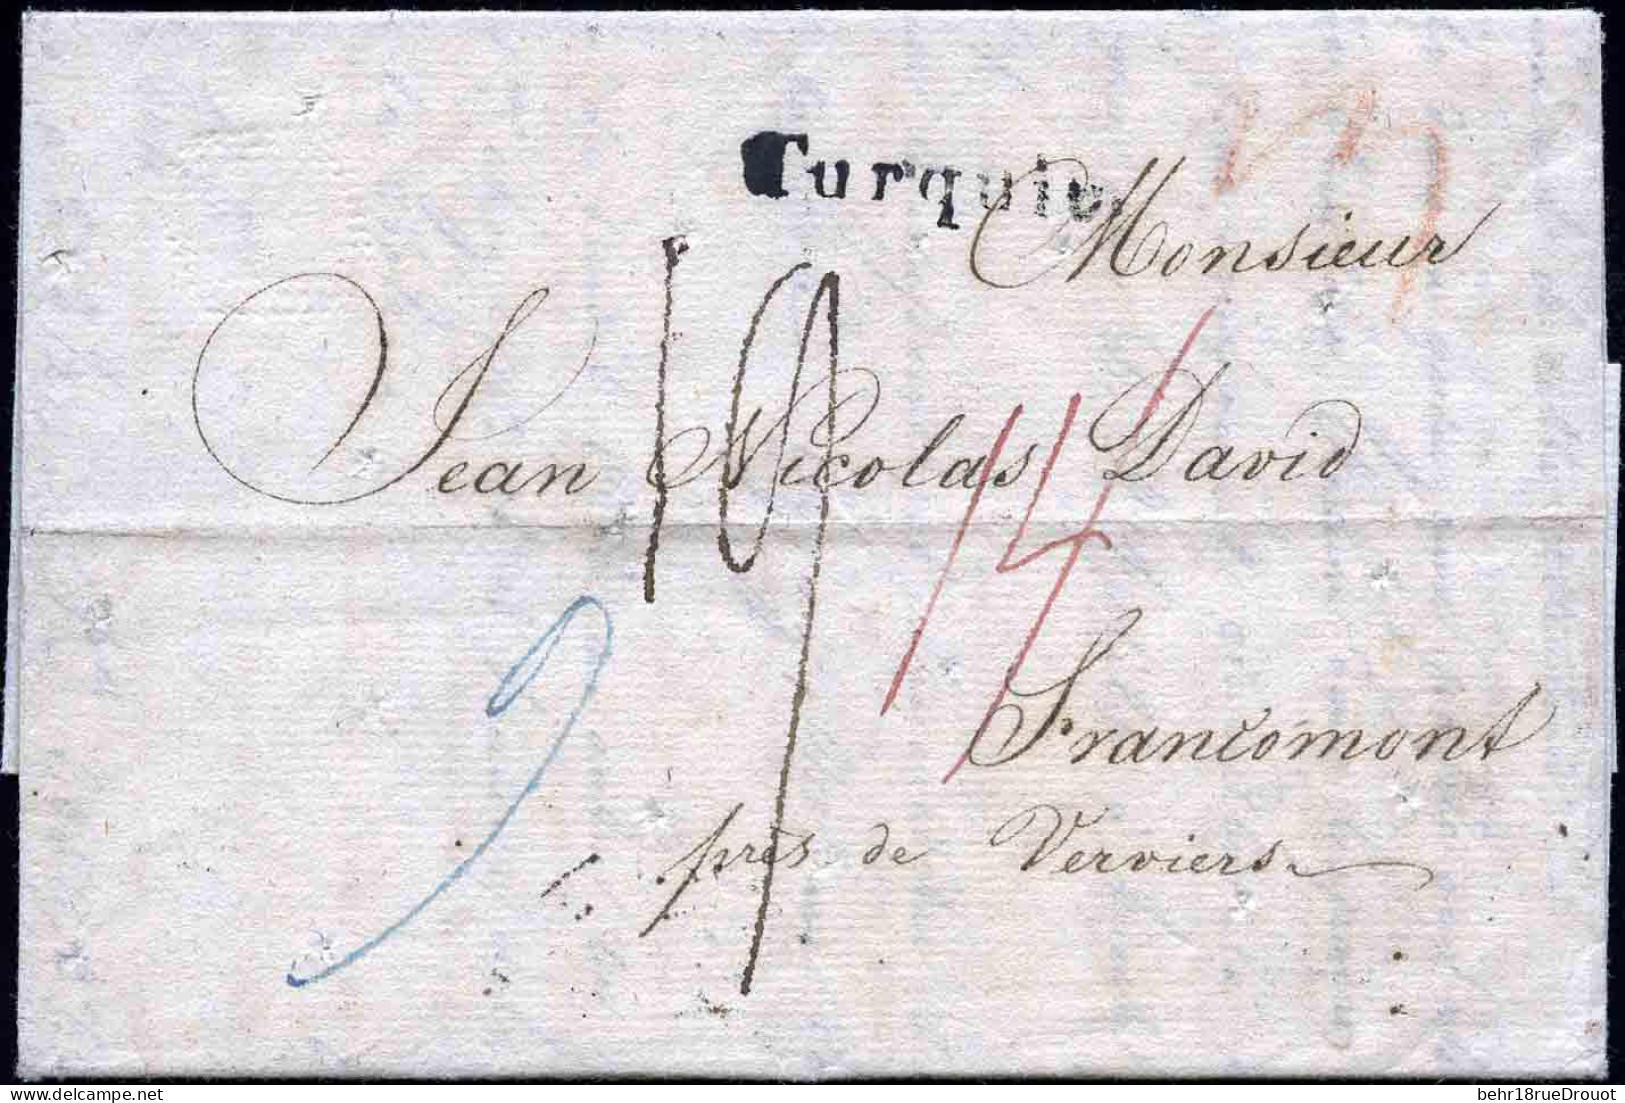 Turquie.
Monsieur
Jean Nicolas David
19
14
Francomont
près de Verviers
behr18rueDrouot